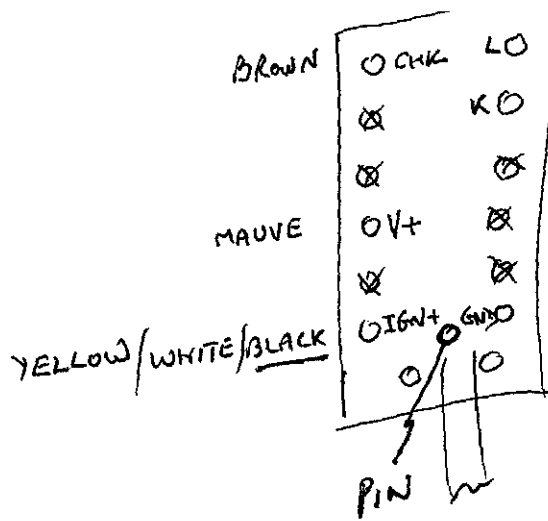 BROWN CHK L
K
MAUVE V+
YELLOW/WHITE/BLACK IGN+ GND
PIN